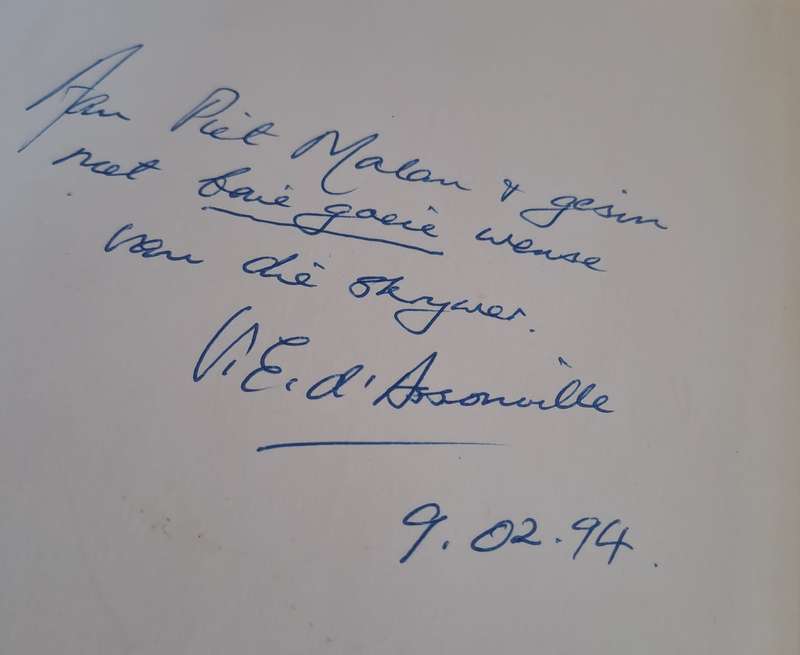 Aan Piet Malan & gesin
met baie goeie wense
van die skrywer.
V.E. d'Assonville
9.02.94.